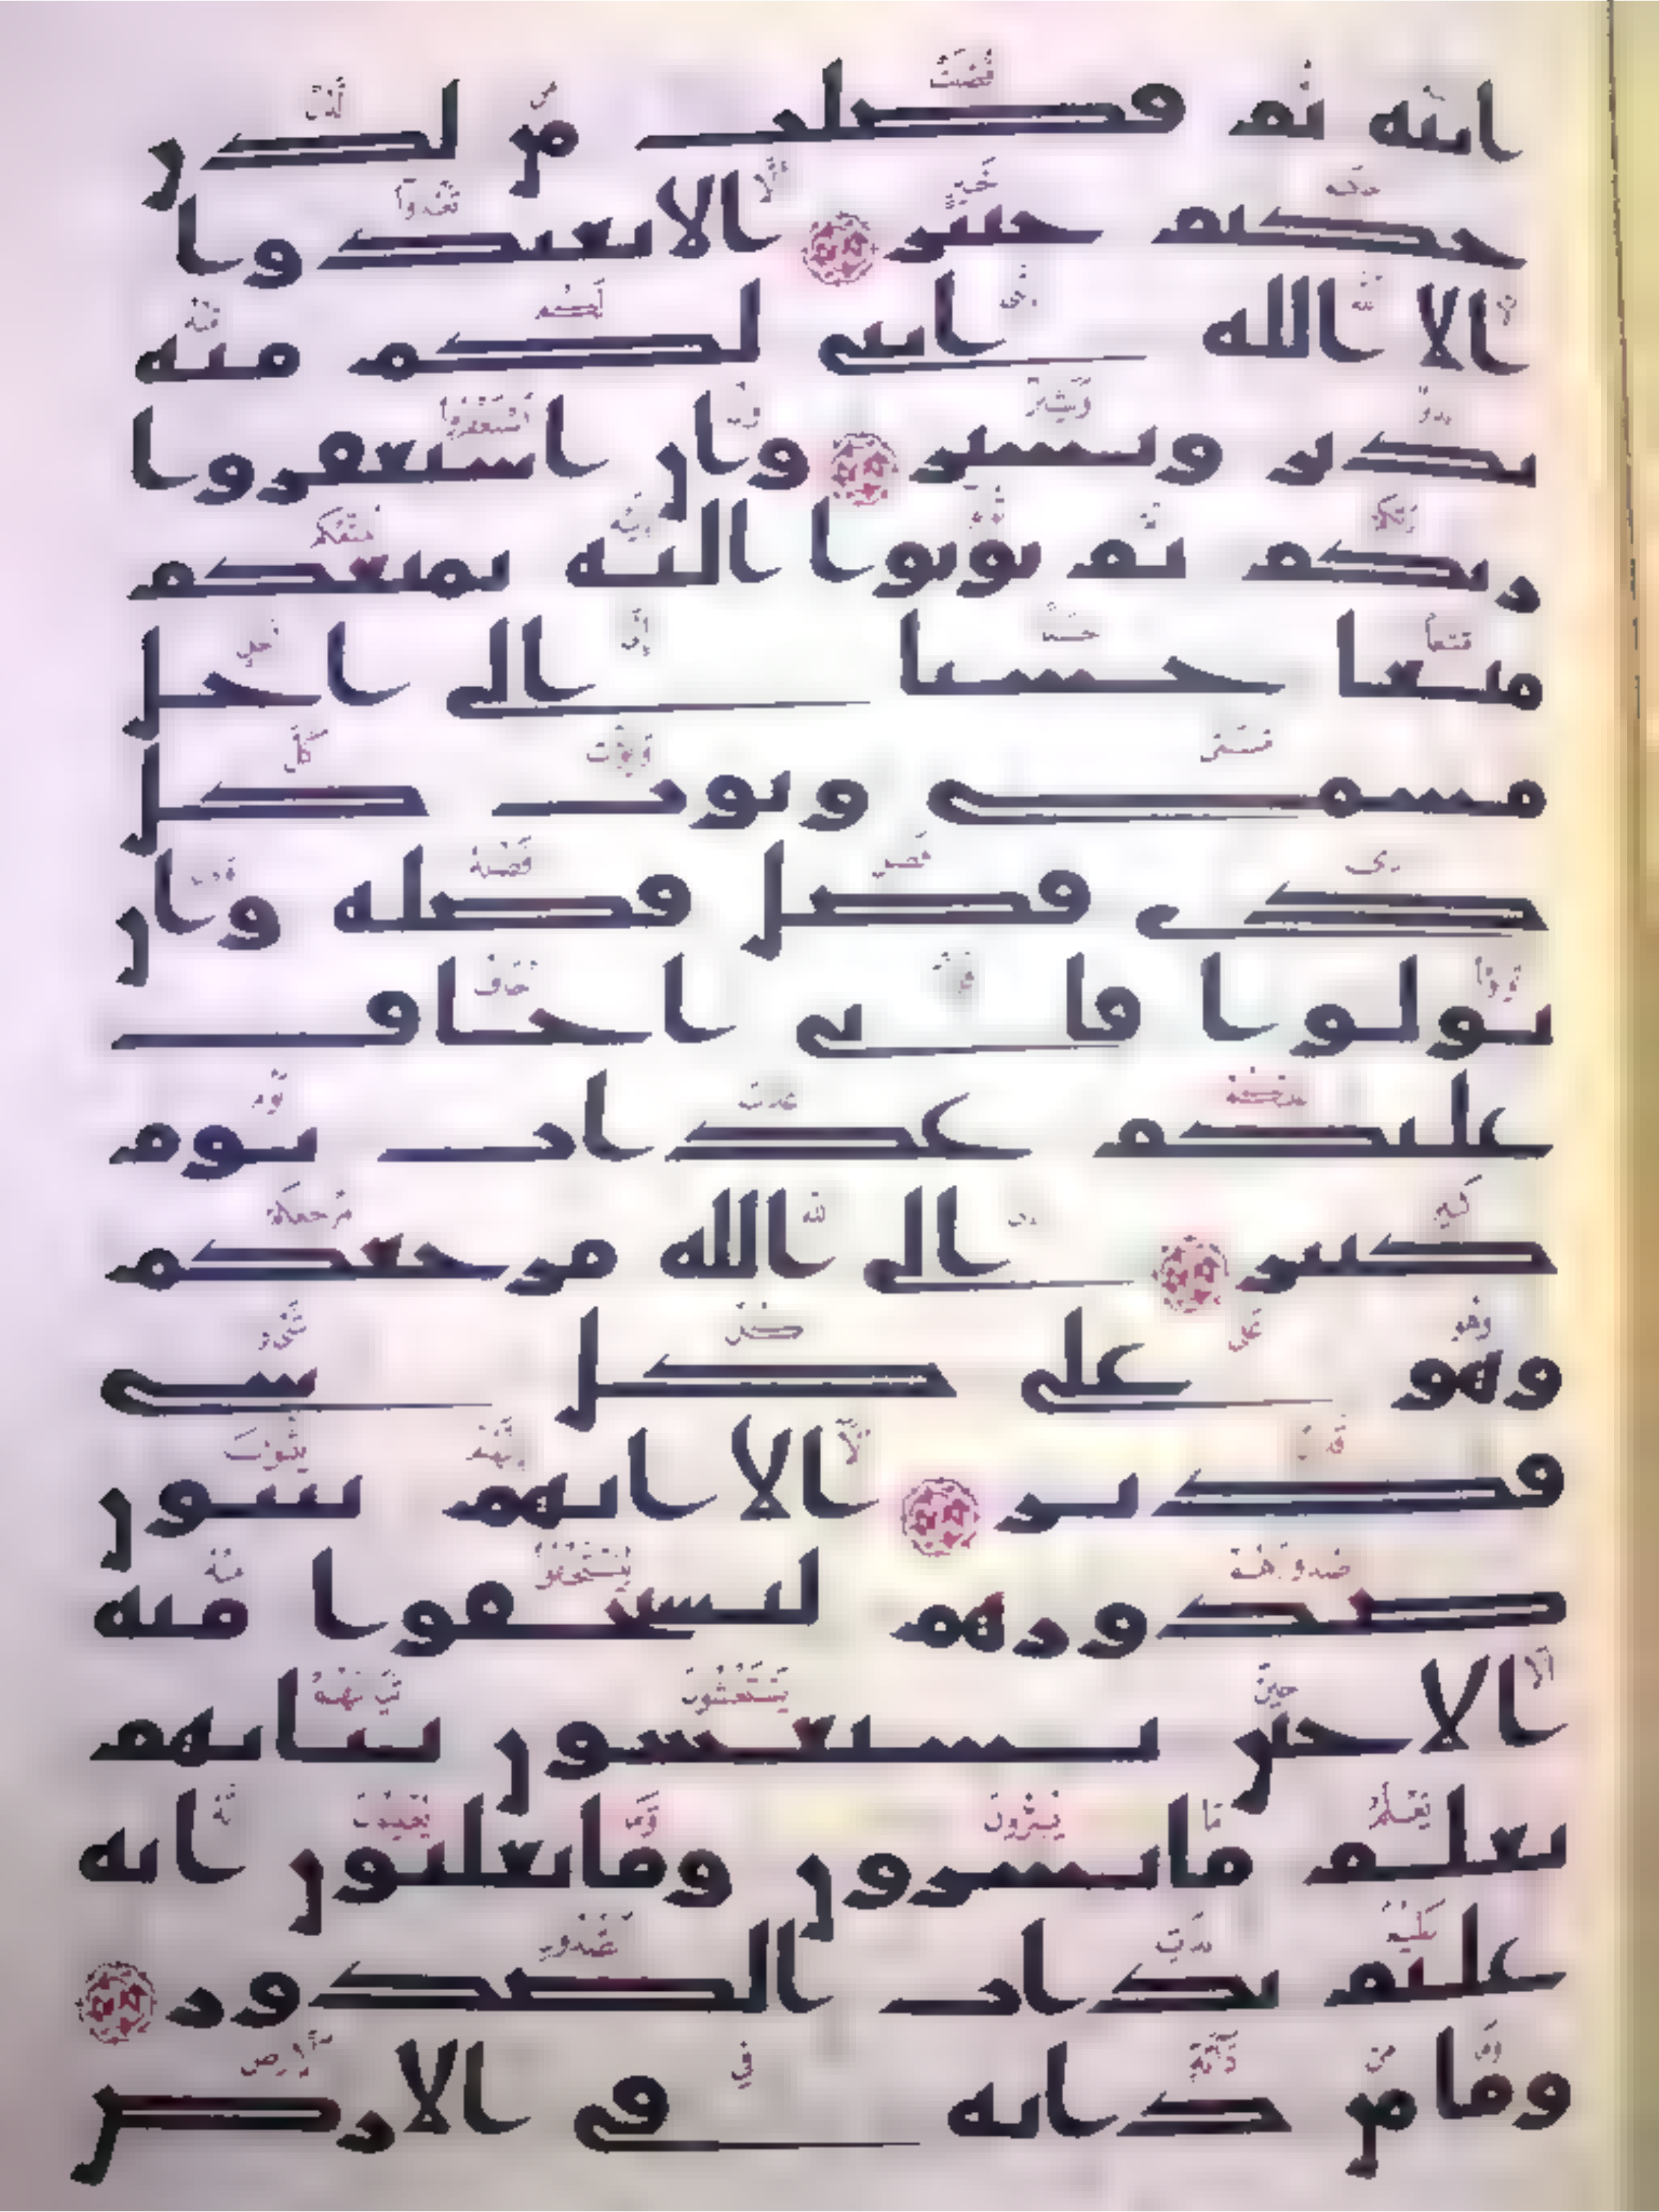 ايته ثم فصلت من لدن
حكيم خبير الا تعبدوا
الا الله انني لكم منه
نذير وبشير وان استغفروا
ربكم ثم توبوا اليه يمتعكم
متعا حسنا الى اجل
مسمى ويوت كل
ذي فضل فضله وان
تولوا فاني اخاف
عليكم عذاب يوم
كبير الى الله مرجعكم
وهو على كل شي
قدير الا انهم يثنون
صدورهم ليستخفوا منه
الا حين يستغشون ثيابهم
يعلم ما يسرون وما يعلنون انه
عليم بذات الصدور
وما من دابه في الارض